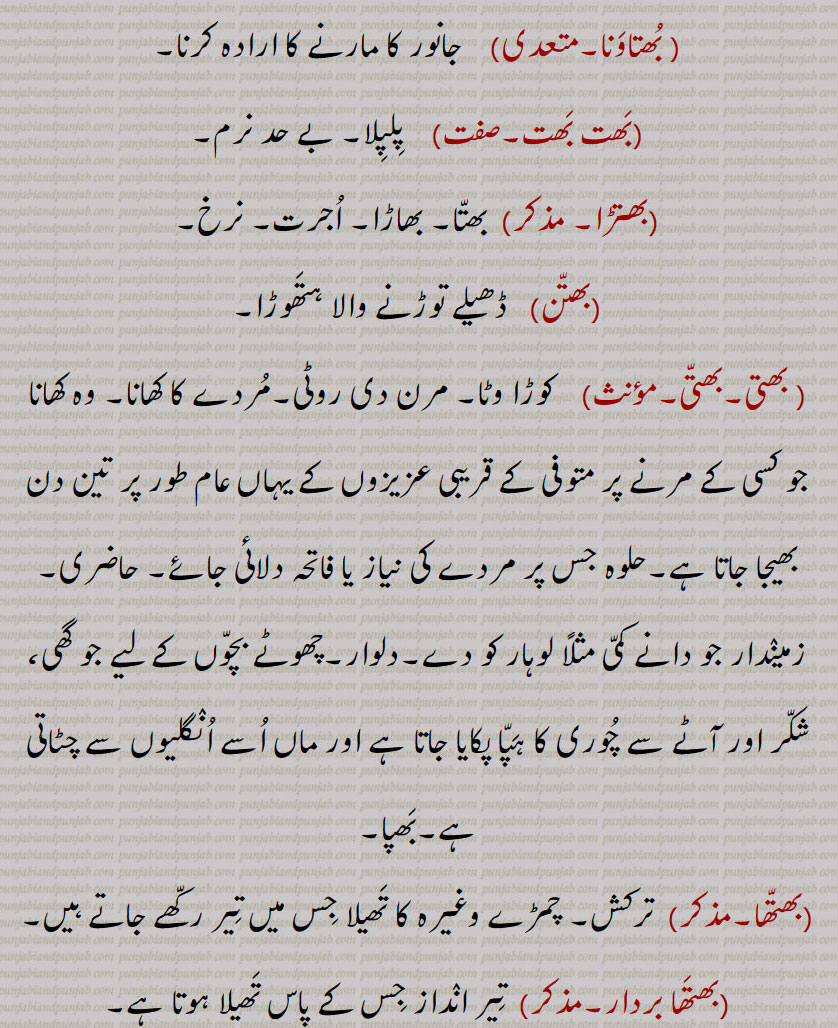 (بُھتاوَنا۔متعدی) جانور کا مارنے کا ارادہ کرنا۔
(بَھت بَھت۔صفت) پِلپِلا۔ بے حد نرم۔
(بھتڑا۔ مذکر) بھتّا۔ بھاڑا۔ اُجرت۔ نرخ۔
(بھتّن) ڈھیلے توڑنے والا ہتَھوڑا۔
(بھتی۔بھتّی۔مؤنث) کوڑا وٹا۔ مرن دی روٹی۔مُردے کا کھانا۔ وہ کھانا
جو کسی کے مرنے پر متوفی کے قریبی عزیزوں کے یہاں عام طور پر تین دن
بھیجا جاتا ہے۔حلوہ جس پر مردے کی نیاز یا فاتحہ دلائی جائے۔ حاضری۔
زمین٘دار جو دانے کمّی مثلاً لوہار کو دے۔دلوار۔چھوٹے بچّوں کے لیے جو گھی،
شکّر اور آٹے سے چُوری کا ہَپّا پکایا جاتا ہے اور ماں اُسے اُن٘گلیوں سے چٹاتی
ہے۔بَھپا۔
(بھتھّا۔مذکر) ترکش۔ چمڑے وغیرہ کا تَھیلا جِس میں تِیر رکّھے جاتے ہیں۔
(بھتھَا بردار۔مذکر) تِیر ان٘داز جِس کے پاس تَھیلا ہوتا ہے۔
punjabiandpunjab.com